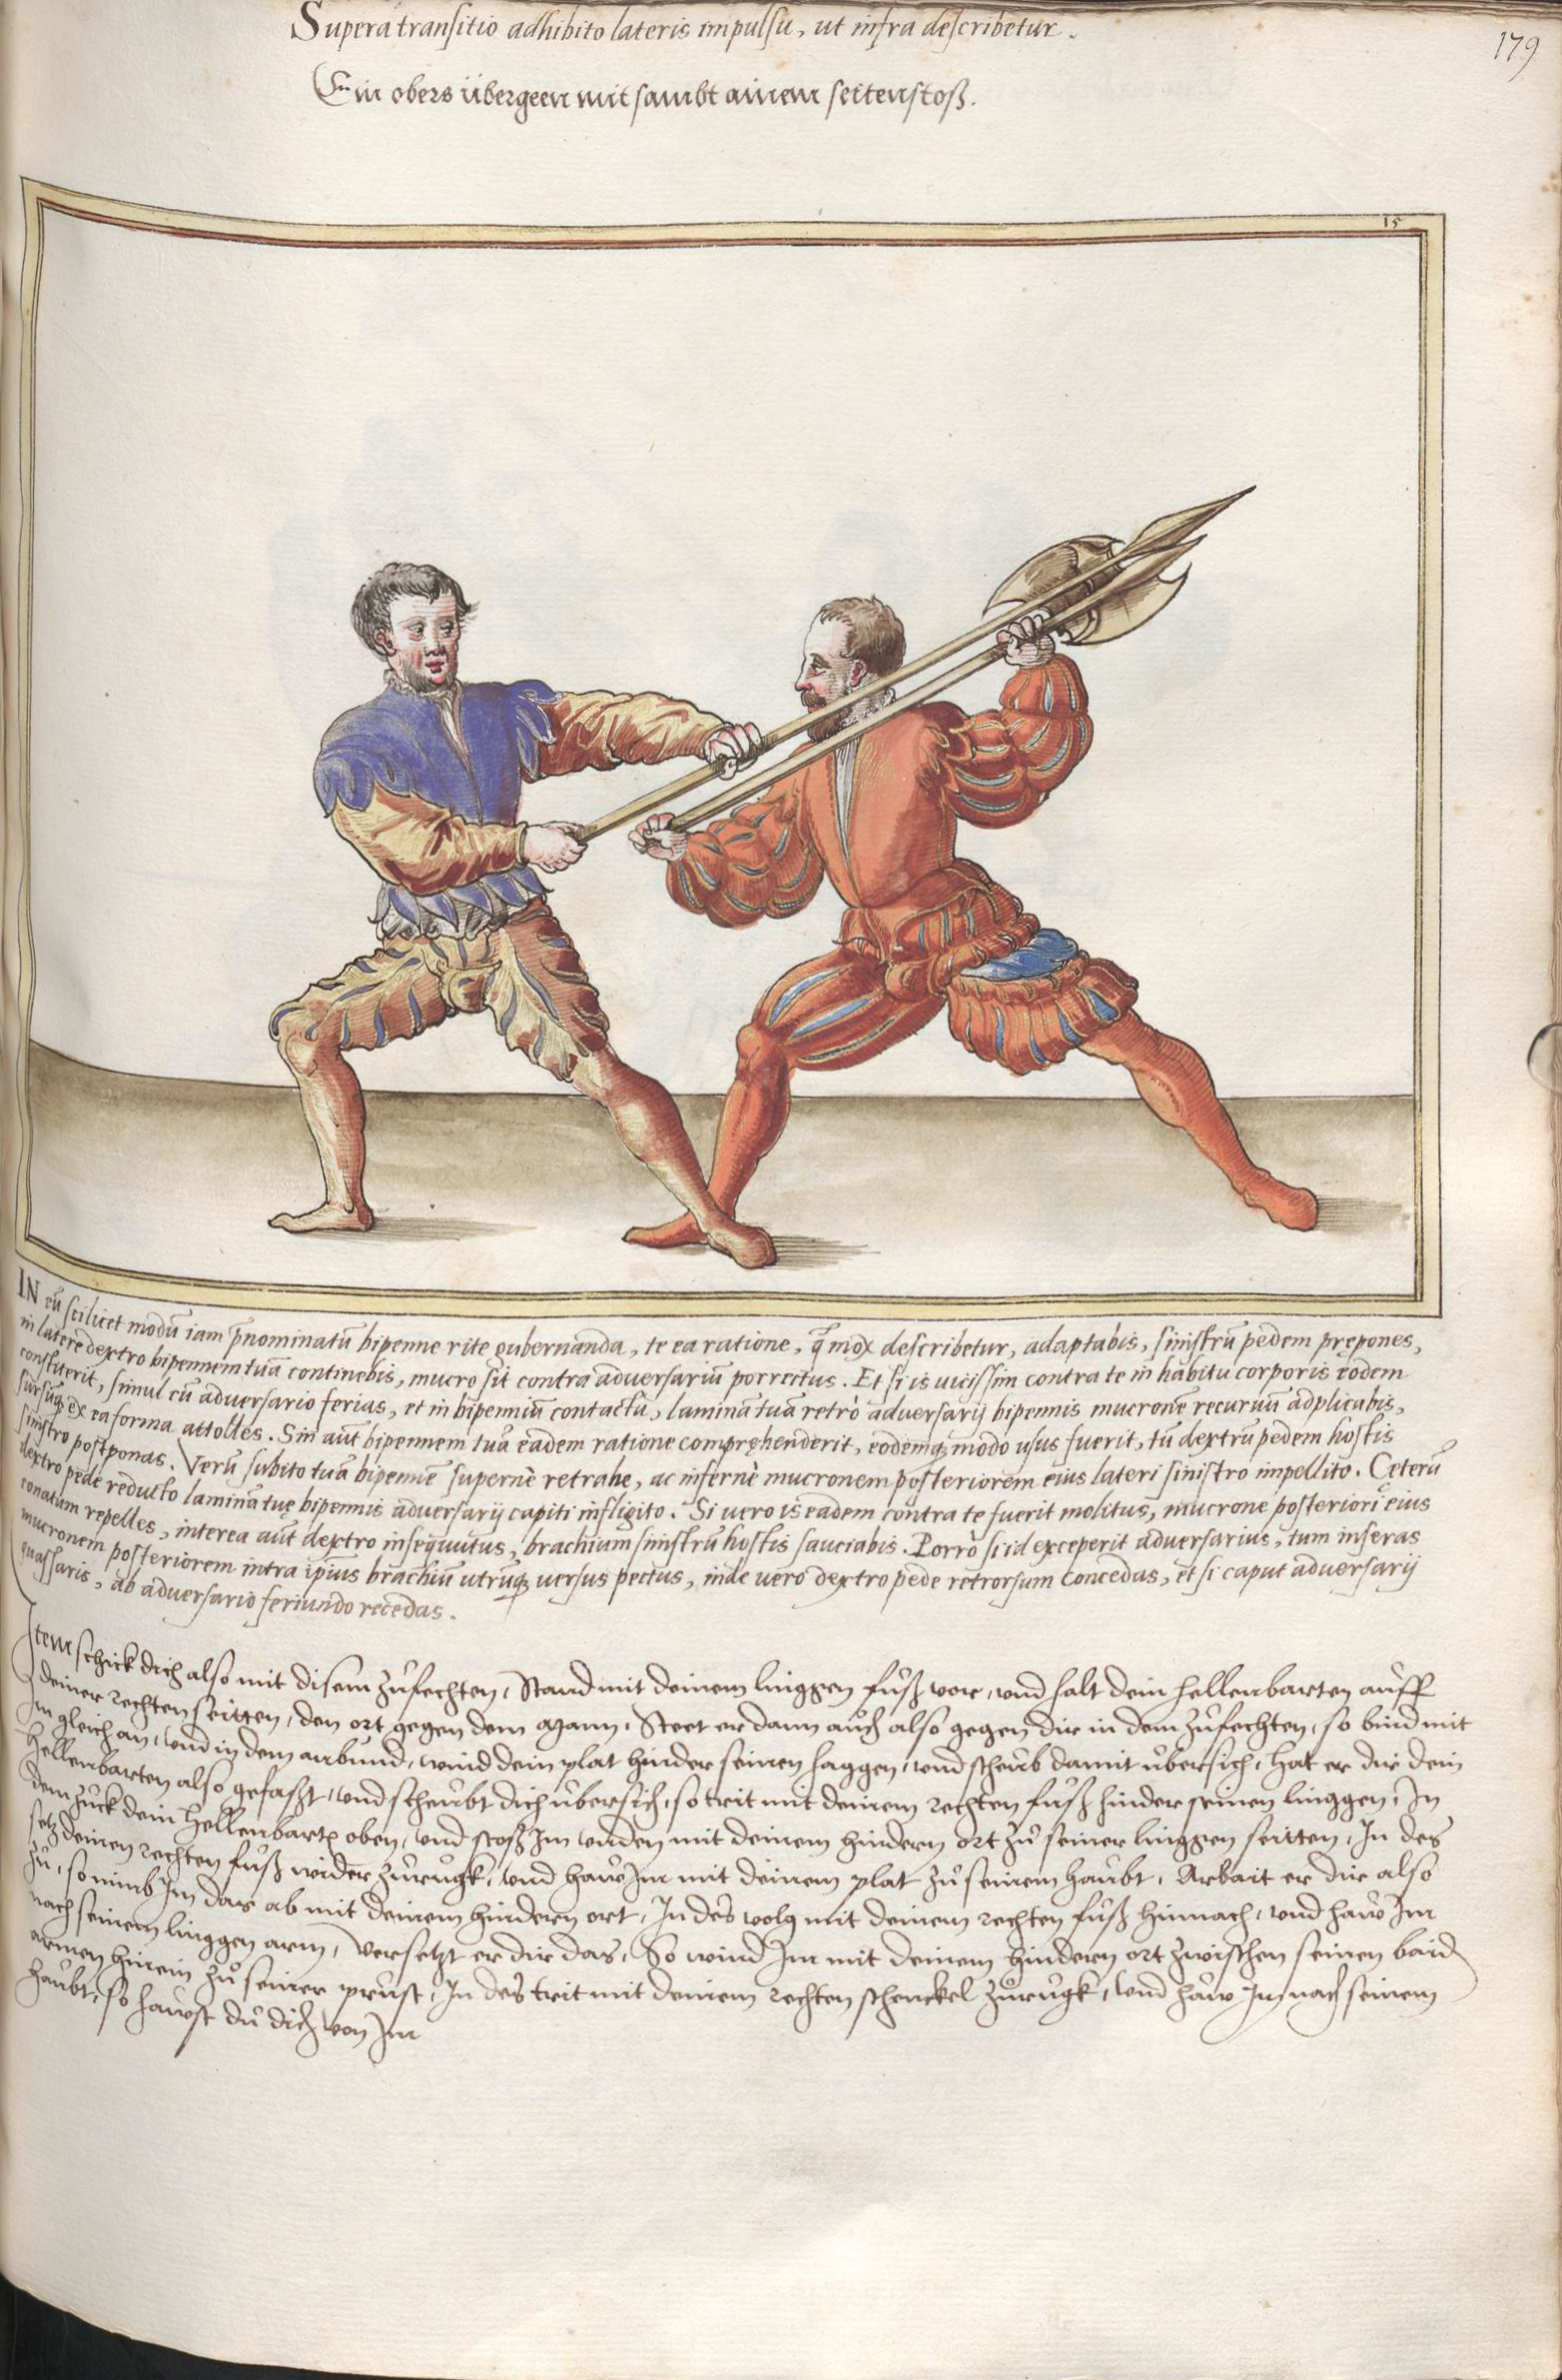 Supera transitio adhibito lateris impulsu, ut infra describetur.
179
Ein obers übergeen mit sambt ainem seitenstoß.
15
IN eū scilicet modū iam p̄nominatū bipenne rite gubernanda, te ea ratione, q̄ mox describetur, adaptabis, sinistrū pedem prępones,
in latere dextro bipennem tuā continebis, mucro sit contra adversariū porrectus. Et si is vicissim contra te in habitu corporis eodem
constiterit, simul cū adversario ferias, et in bipenniū contactu, laminā tuā retrò adversarij bipennis mucronē recurvū adplicabis,
sursūq; ex ea forma attolles. Sin aūt bipennem tuā eadem ratione compręhenderit, eodemq; modo usus fuerit, tū dextrū pedem hostis
sinistro postponas. Verū subito tuā bipennē supernè retrahe, ac infernè mucronem posteriorem eius lateri sinistro impellito. Ceterū
dextro pede reducto laminā tuę bipennis adversarij capiti infligito. Si vero is eadem contra te fuerit molitus, mucrone posteriori eius
conatum repelles, interea aūt dextro insequutus, brachium sinistrū hostis sauciabis. Porrò si id exceperit adversarius, tum inseras
mucronem posteriorem intra ipsius brachiū utrūq; versus pectus, inde vero dextro pede retrorsum concedas, et si caput adversarij
quassaris, ab adversario feriundo recedas.
Item schick dich also mit disem zůfechten, Stand mit deinem linggen fůß vor, vnd halt dein hellenbarten auff
deiner rechten seitten, den ort gegen dem Mann, Steet er dann auch also gegen dir in dem zůfechten, so bind mit
Im gleich an, vnd in dem anbund, wind dein plat hinder seinen haggen, vnd scheub damit übersich, hat er dir dein
hellenbarten also gefaßt, vnd scheubt dich übersich, so trit mit deinem rechten fůß hinder seinen linggen, In
dem zuck dein hellenbartn oben, vnd stoß Im vnden mit deinem hindern ort zů seiner linggen seitten, In des
setz deinen rechten fůß wider zurugk, vnd haw Im mit deinem plat zů seinem haubt, Arbait er dir also
zů, so nimb Im das ab mit deinem hindern ort, In des volg mit deinem rechten fůß hinnach, vnd haw Im
nach seinem linggen arm, Versetzt er dir das, So wind Im mit deinem hinderen ort zwischen seinen baid
armen hinein zů seiner prust, In des trit mit deinem rechten schenckel zurugk, vnd haw Im nach seinem
haubt, so hawst du dich von Im